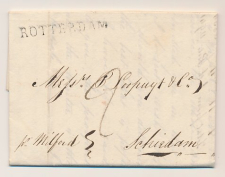 ROTTERDAM
Messrs P Loopuyt & Co
pr Milford
Schiedam